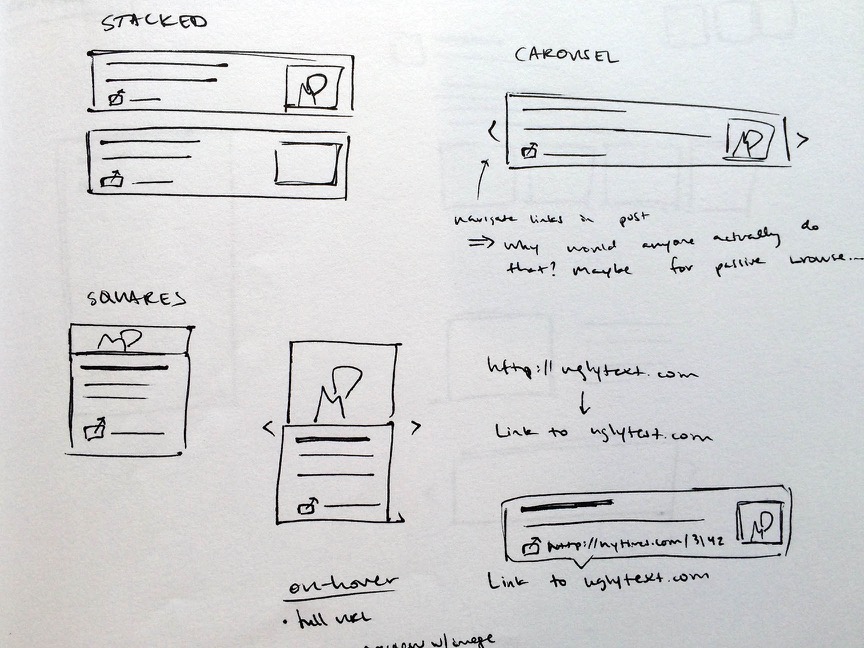 STACKED
CAROUSEL
< >
navigate links in post
⇒ Why would anyone actually do
that? Maybe for passive browse...
SQUARES
< >
http://uglytext.com
↓
Link to uglytext.com
http://nytimes.com/3142
Link to uglytext.com
on-hover
• full URL
w/image